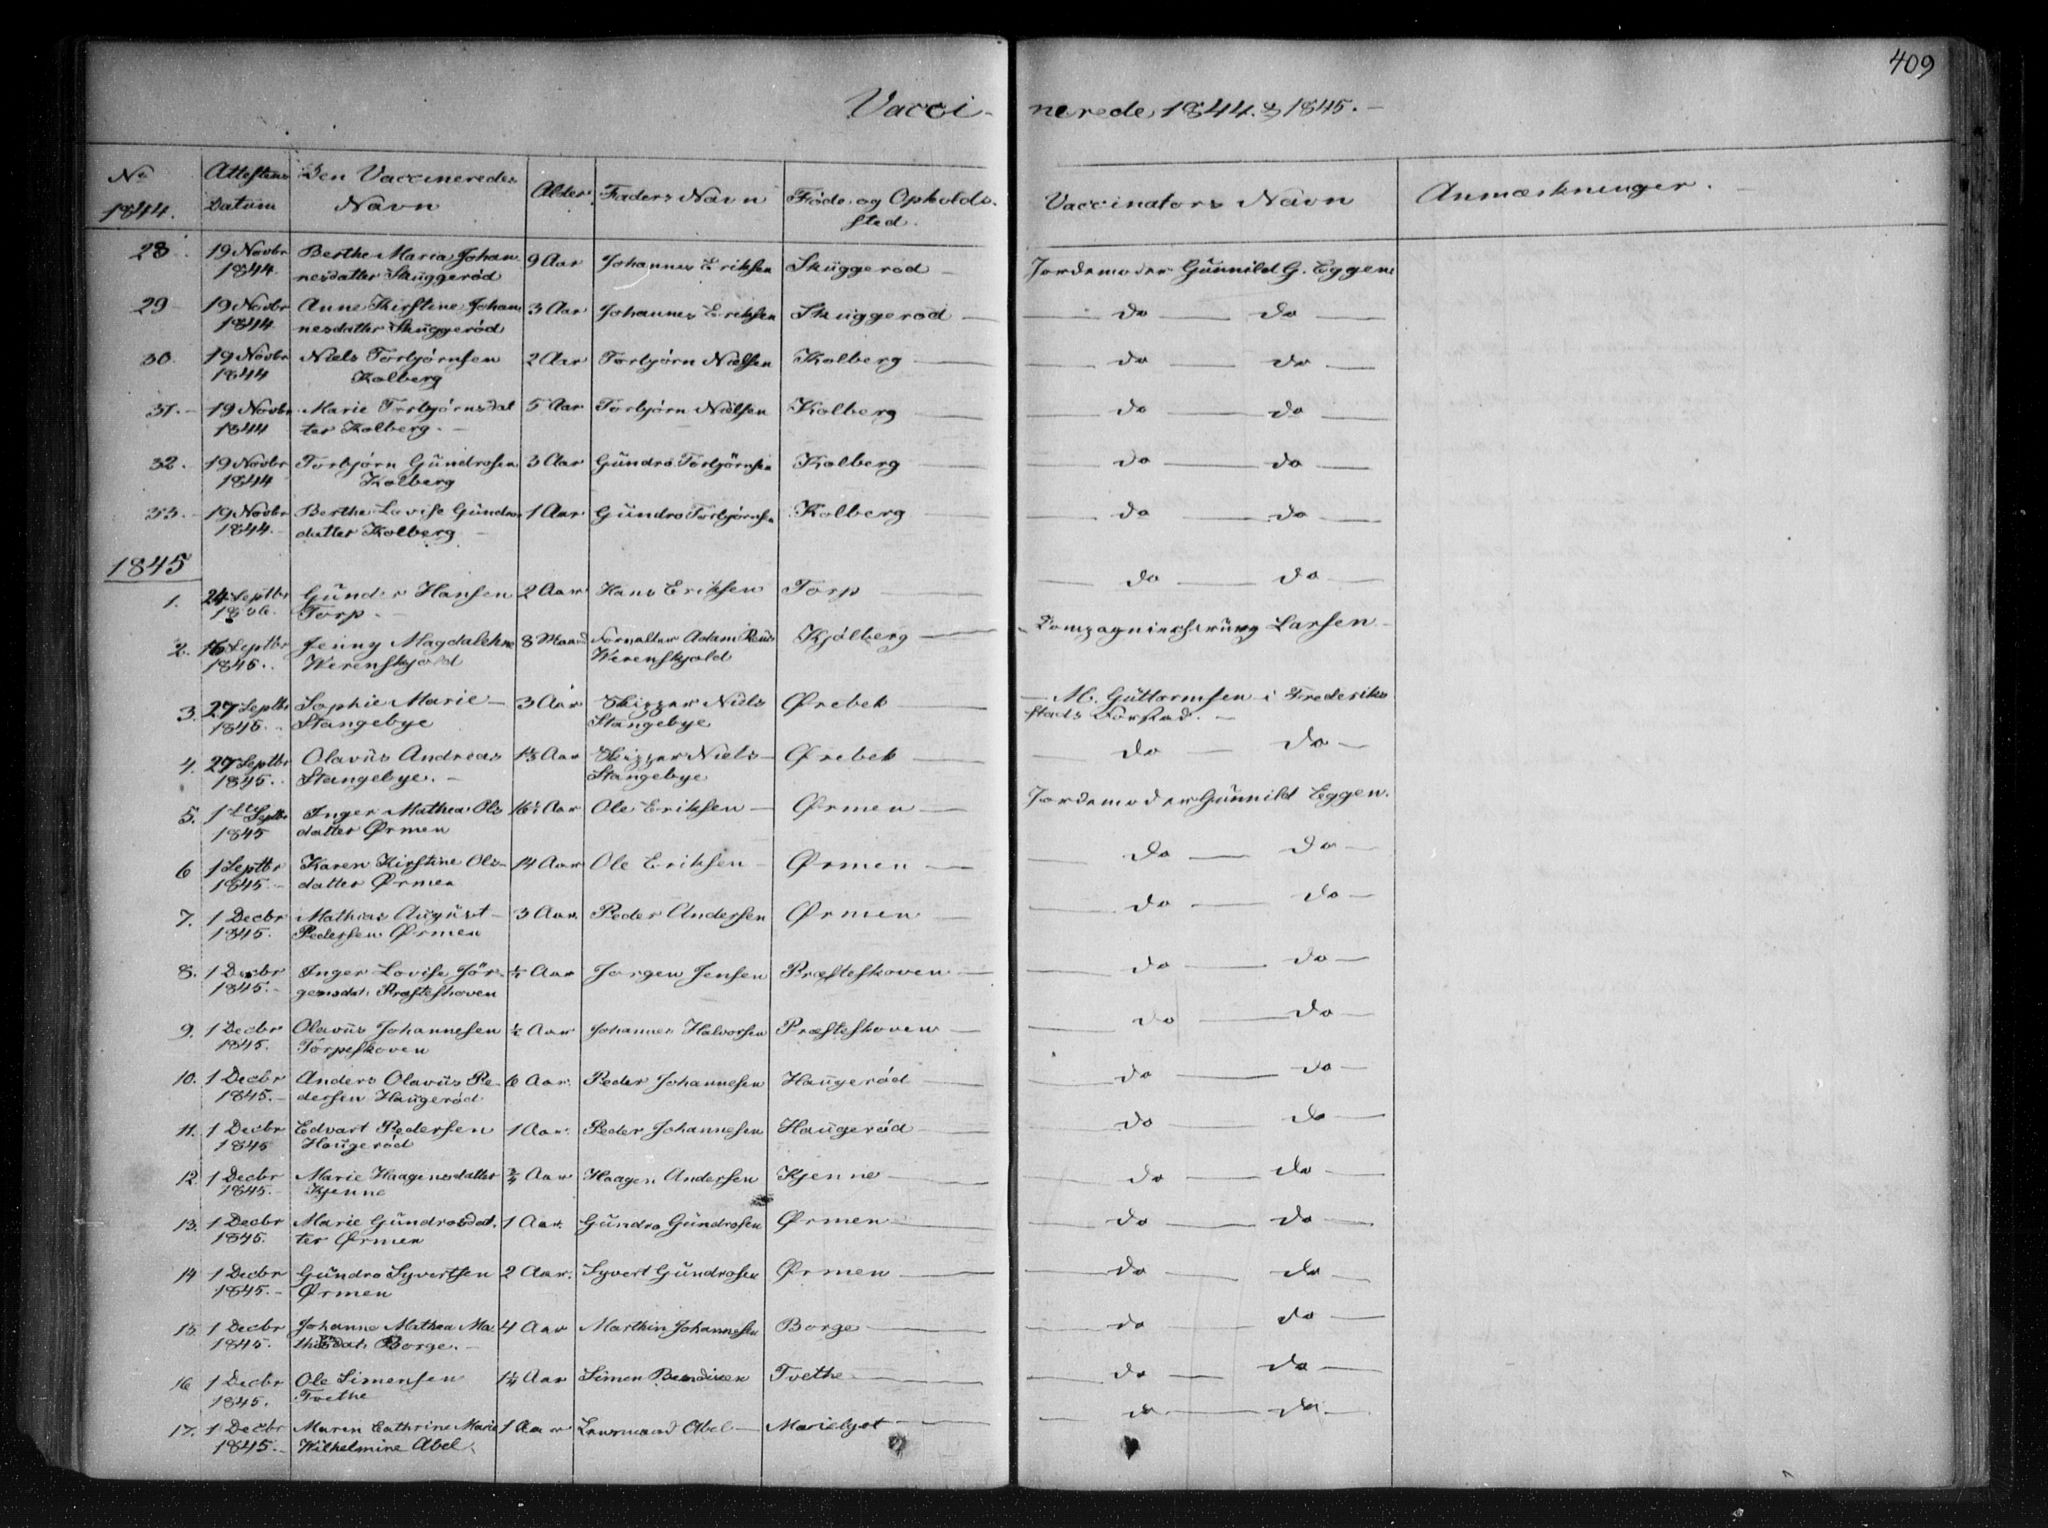 409
Vacci- nerede 1844 & 1845.-
No 1844. Attestens Datum Den Vaccineredes Navn Alder Faders Navn Føde- og Opholds-sted. Vaccinators Navn Anmærkninger.
28 19 Novbr Berthe Maria Johan- 9 Aar Johannes Eriksen Skuggerød Jordemoder Gunnild G. Eggen
1844. nesdatter Skuggerød
29 19 Novbr Anne Kirstine Johan- 3 Aar Johannes Eriksen Skuggerød — do — do —
1844 nesdattr Skuggerød
30. 19 Novbr Niels Torbjørnsen 2 Aar Torbjørn Nielsen Kolberg — do — do —
1844 Kolberg
31. 19 Novbr Marie Torbjørnsdat 5 Aar Torbjørn Nielsen Kolberg — do — do —
1844 ter Kolberg.
32. 19 Novbr Torbjørn Gundrosen 3 Aar Gundro Torbjørnsen Kolberg — do — do —
1844 Kolberg
33. 19 Novbr Berthe Lovise Gundros 1 Aar Gundro Torbjørnsen Kolberg — do — do —
1844. datter Kolberg
1845
1. 24 Septbr Gunder Hansen 2 Aar Hans Eriksen Torp — do — do —
Torp
2. 16 Septbr Jenny Magdalene 8 Maaned Forvalter Adam Kjølberg Larsen
1845. Werenskjold Werenskjold
3. 27 Septbr Sophie Marie 3 Aar Skipper Niels Ørebek M. Guttormsen i Frederik-
1845. Stangebye Stangebye stads Forstad.
4. 27 Septbr Olavus Andreas 1½ Aar Skipper Niels Ørebek — do — do —
1845. Stangebye. Stangebye
5. 1 Septbr Inger Mathea Ols 16½ Aar Ole Eriksen Ørmen Jordemoder Gunnild Eggen.
1845 datter Ørmen
6 1 Septbr Karen Kirstine Ols- 14 Aar Ole Eriksen Ørmen — do — do —
1845. datter Ørmen
7. 1 Decbr Mathias August 3 Aar. Peder Andersen Ørmen — do — do —
1845. Pedersen Ørmen
8. 1 Decbr Inger Lovise Jør- Aar Jørgen Jensen Præsteskoven — do — do —
1845. gensdat. Præsteskoven
9. 1 Decbr Olavus Johannesen ½ Aar Johannes Halvorsen Præsteskoven — do — do —
1845. Torpeskoven
10. 1 Decbr Anders Olavus Pe- 6 Aar. Peder Johannesen Haugerød — do — do —
1845. dersen Haugerød
11. 1 Decbr Edvart Pedersen 1 Aar. Peder Johannesen Haugerød — do — do —
1845 Haugerød
12. 1 Decbr Marie Haagensdatter ¾ Aar Haagen Andersen Kjenne — do — do —
1845. Kjenne
13. 1 Decbr Marie Gundrosdat. 1 Aar. Gundro Gundrosen Ørmen — do — do —
1845. ter Ørmen
14 1 Decbr Gundro Syvertsen 2 Aar. Syvert Gundrosen Ørmen — do — do —
1845. Ørmen
15 1 Decbr Johanne Mathea Ma 4 Aar Marthin Johannesen Borge — do — do —
1845. Borge.
16 1 Decbr Ole Simensen 1¼ Aar Simen Bendixen Tvethe — do — do —
1845. Tvethe
17. 1 Decbr Maren Cathrine Marie 1 Aar Lensmand Abel Marielyst — do — do —
1845. Wilhelmine Abel